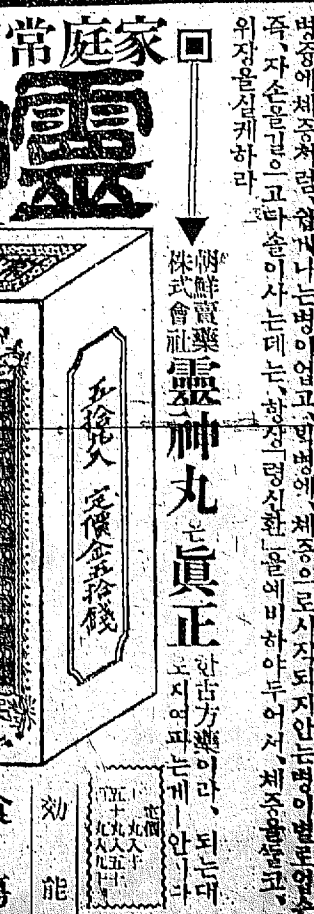 병중에 체증처럼, 쉽게나는병이업고, 만병에, 체증으로시작되지안는병이별로업
즉, 자손을길으고다솔이사는데는, 항상「령신환」을예비하야두어서, 체증을뚤고,
위장을실케하라
家庭常
靈
朝鮮賣藥
株式會社
靈神丸은眞正
한古方藥이라、되는대
로지여파는게 안이다
五拾丸入 定價金五拾錢
定價
効能